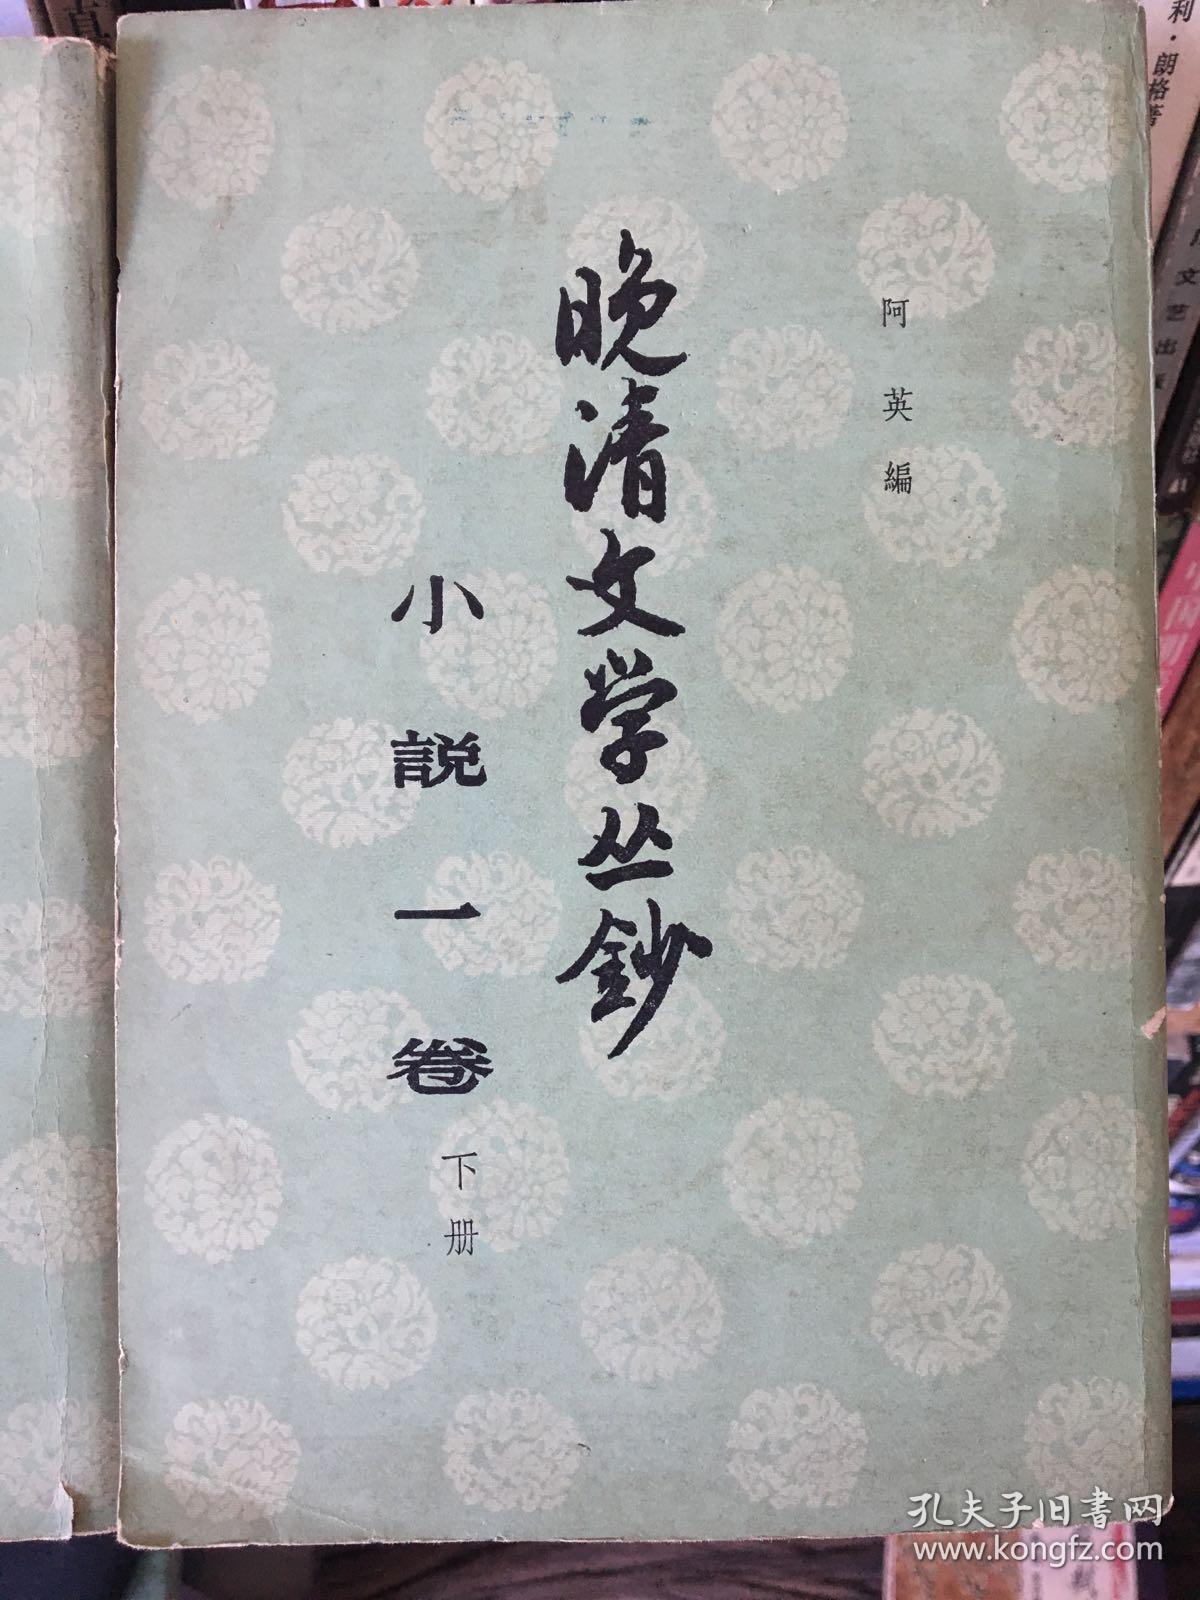 阿英編
晚清文学丛鈔
小説一卷
下册
利·朗格著
文艺出
孔夫子旧書网
www.kongfz.com